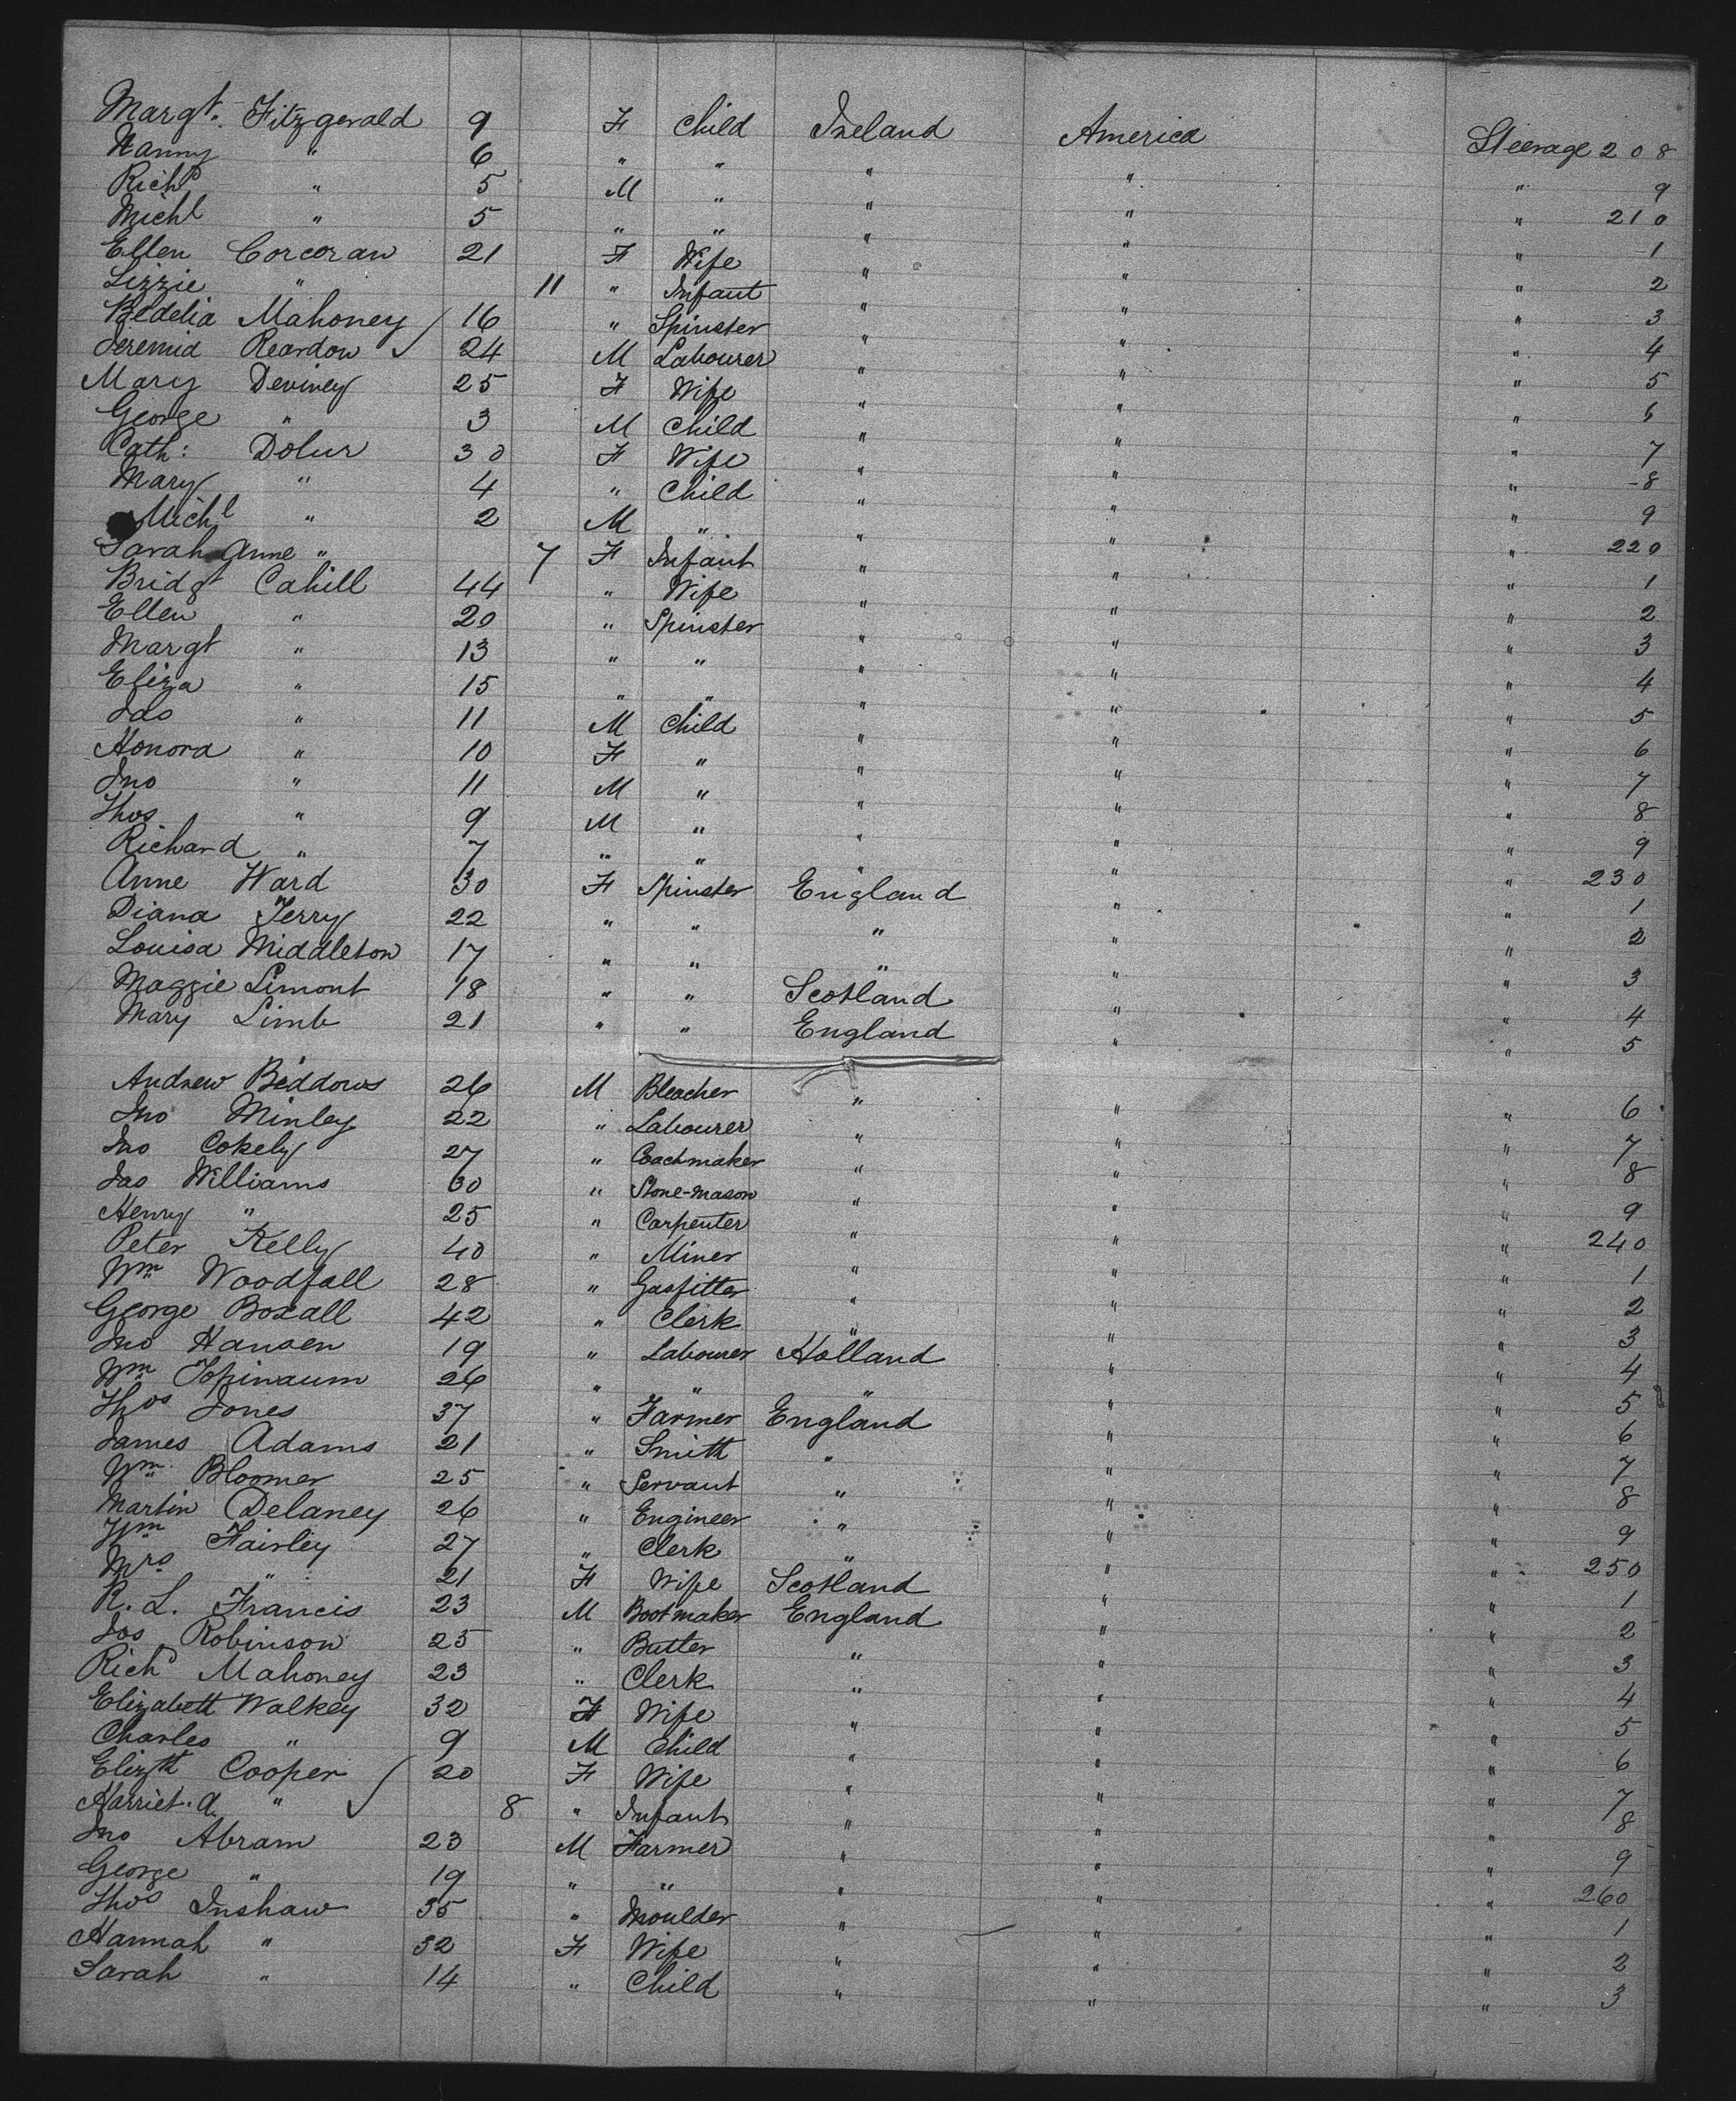 Margt. Fitzgerald 9 F Child Ireland America Steerage 208
Nanny " 6 " " " " " 9
Richd " 5 M " " " " 210
Michl " 5 " " " " " 1
Ellen Corcoran 21 F Wife " " " 2
Lizzie " 11 " Infant " " " 3
Bedelia Mahoney 16 " Spinster " " " 4
Jeremid Reardon 24 M Labourer " " " 5
Mary Deviney 25 F Wife " " " 6
George " 3 M Child " " " 7
Cath: Dolur 30 F Wife " " " 8
Mary " 4 " Child " " " 9
Michl " 2 M " " " " 220
Sarah Anne " 7 F Infant " " " 1
Bridgt Cahill 44 " Wife " " " 2
Ellen " 20 " Spinster " " " 3
Margt " 13 " " " " " 4
Eliza " 15 " " " " " 5
Jas " 11 M Child " " " 6
Honora " 10 F " " " " 7
Jno " 11 M " " " " 8
Thos " 9 M " " " " 9
Richard " 7 " " " " " 230
Anne Ward 30 F Spinster England " " 1
Diana Terry 22 " " " " " 2
Louisa Middleton 17 " " " " " 3
Maggie Limont 18 " " Scotland " " 4
Mary Limb 21 " " England " " 5
Andrew Beddows 26 M Bleacher " " " 6
Jno Minley 22 " Labourer " " " 7
Jno Cokely 27 " Coachmaker " " " 8
Jas Williams 30 " Stone-mason " " " 9
Henry " 25 " Carpenter " " " 240
Peter Kelly 40 " Miner " " " 1
Wm Woodfall 28 " Gasfitter " " " 2
George Boxall 42 " Clerk " " " 3
Jno Hansen 19 " Labourer Holland " " 4
Wm Topinaum 26 " " " " " 5
Thos Jones 37 " Farmer England " " 6
James Adams 21 " Smith " " " 7
Wm Bloomer 25 " Servant " " " 8
Martin Delaney 26 " Engineer " " " 9
Wm Fairley 27 " Clerk " " " 250
Mrs " 21 F Wife Scotland " " 1
R. L. Francis 23 M Bootmaker England " " 2
Jos Robinson 25 " Butler " " " 3
Richd Mahoney 23 " Clerk " " " 4
Elizabeth Walkey 32 F Wife " " " 5
Charles " 9 M Child " " " 6
Elizth Cooper 20 F Wife " " " 7
Harriet. A. " 8 " Infant " " " 8
Jno Abram 23 M Farmer " " " 9
George " 19 " " " " " 260
Thos Inshaw 35 " Moulder " " " 1
Hannah " 32 F Wife " " " 2
Sarah " 14 " Child " " " 3